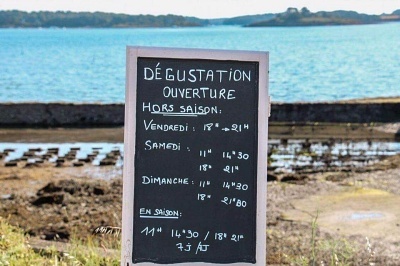 DÉGUSTATION
OUVERTURE
HORS SAISON:
VENDREDI: 18H → 21H
SAMEDI: 11H 14H30
18H 21H
DIMANCHE: 11H 14H30
18H 21H30
EN SAISON:
11H 14H30 / 18H 21H
7j/7